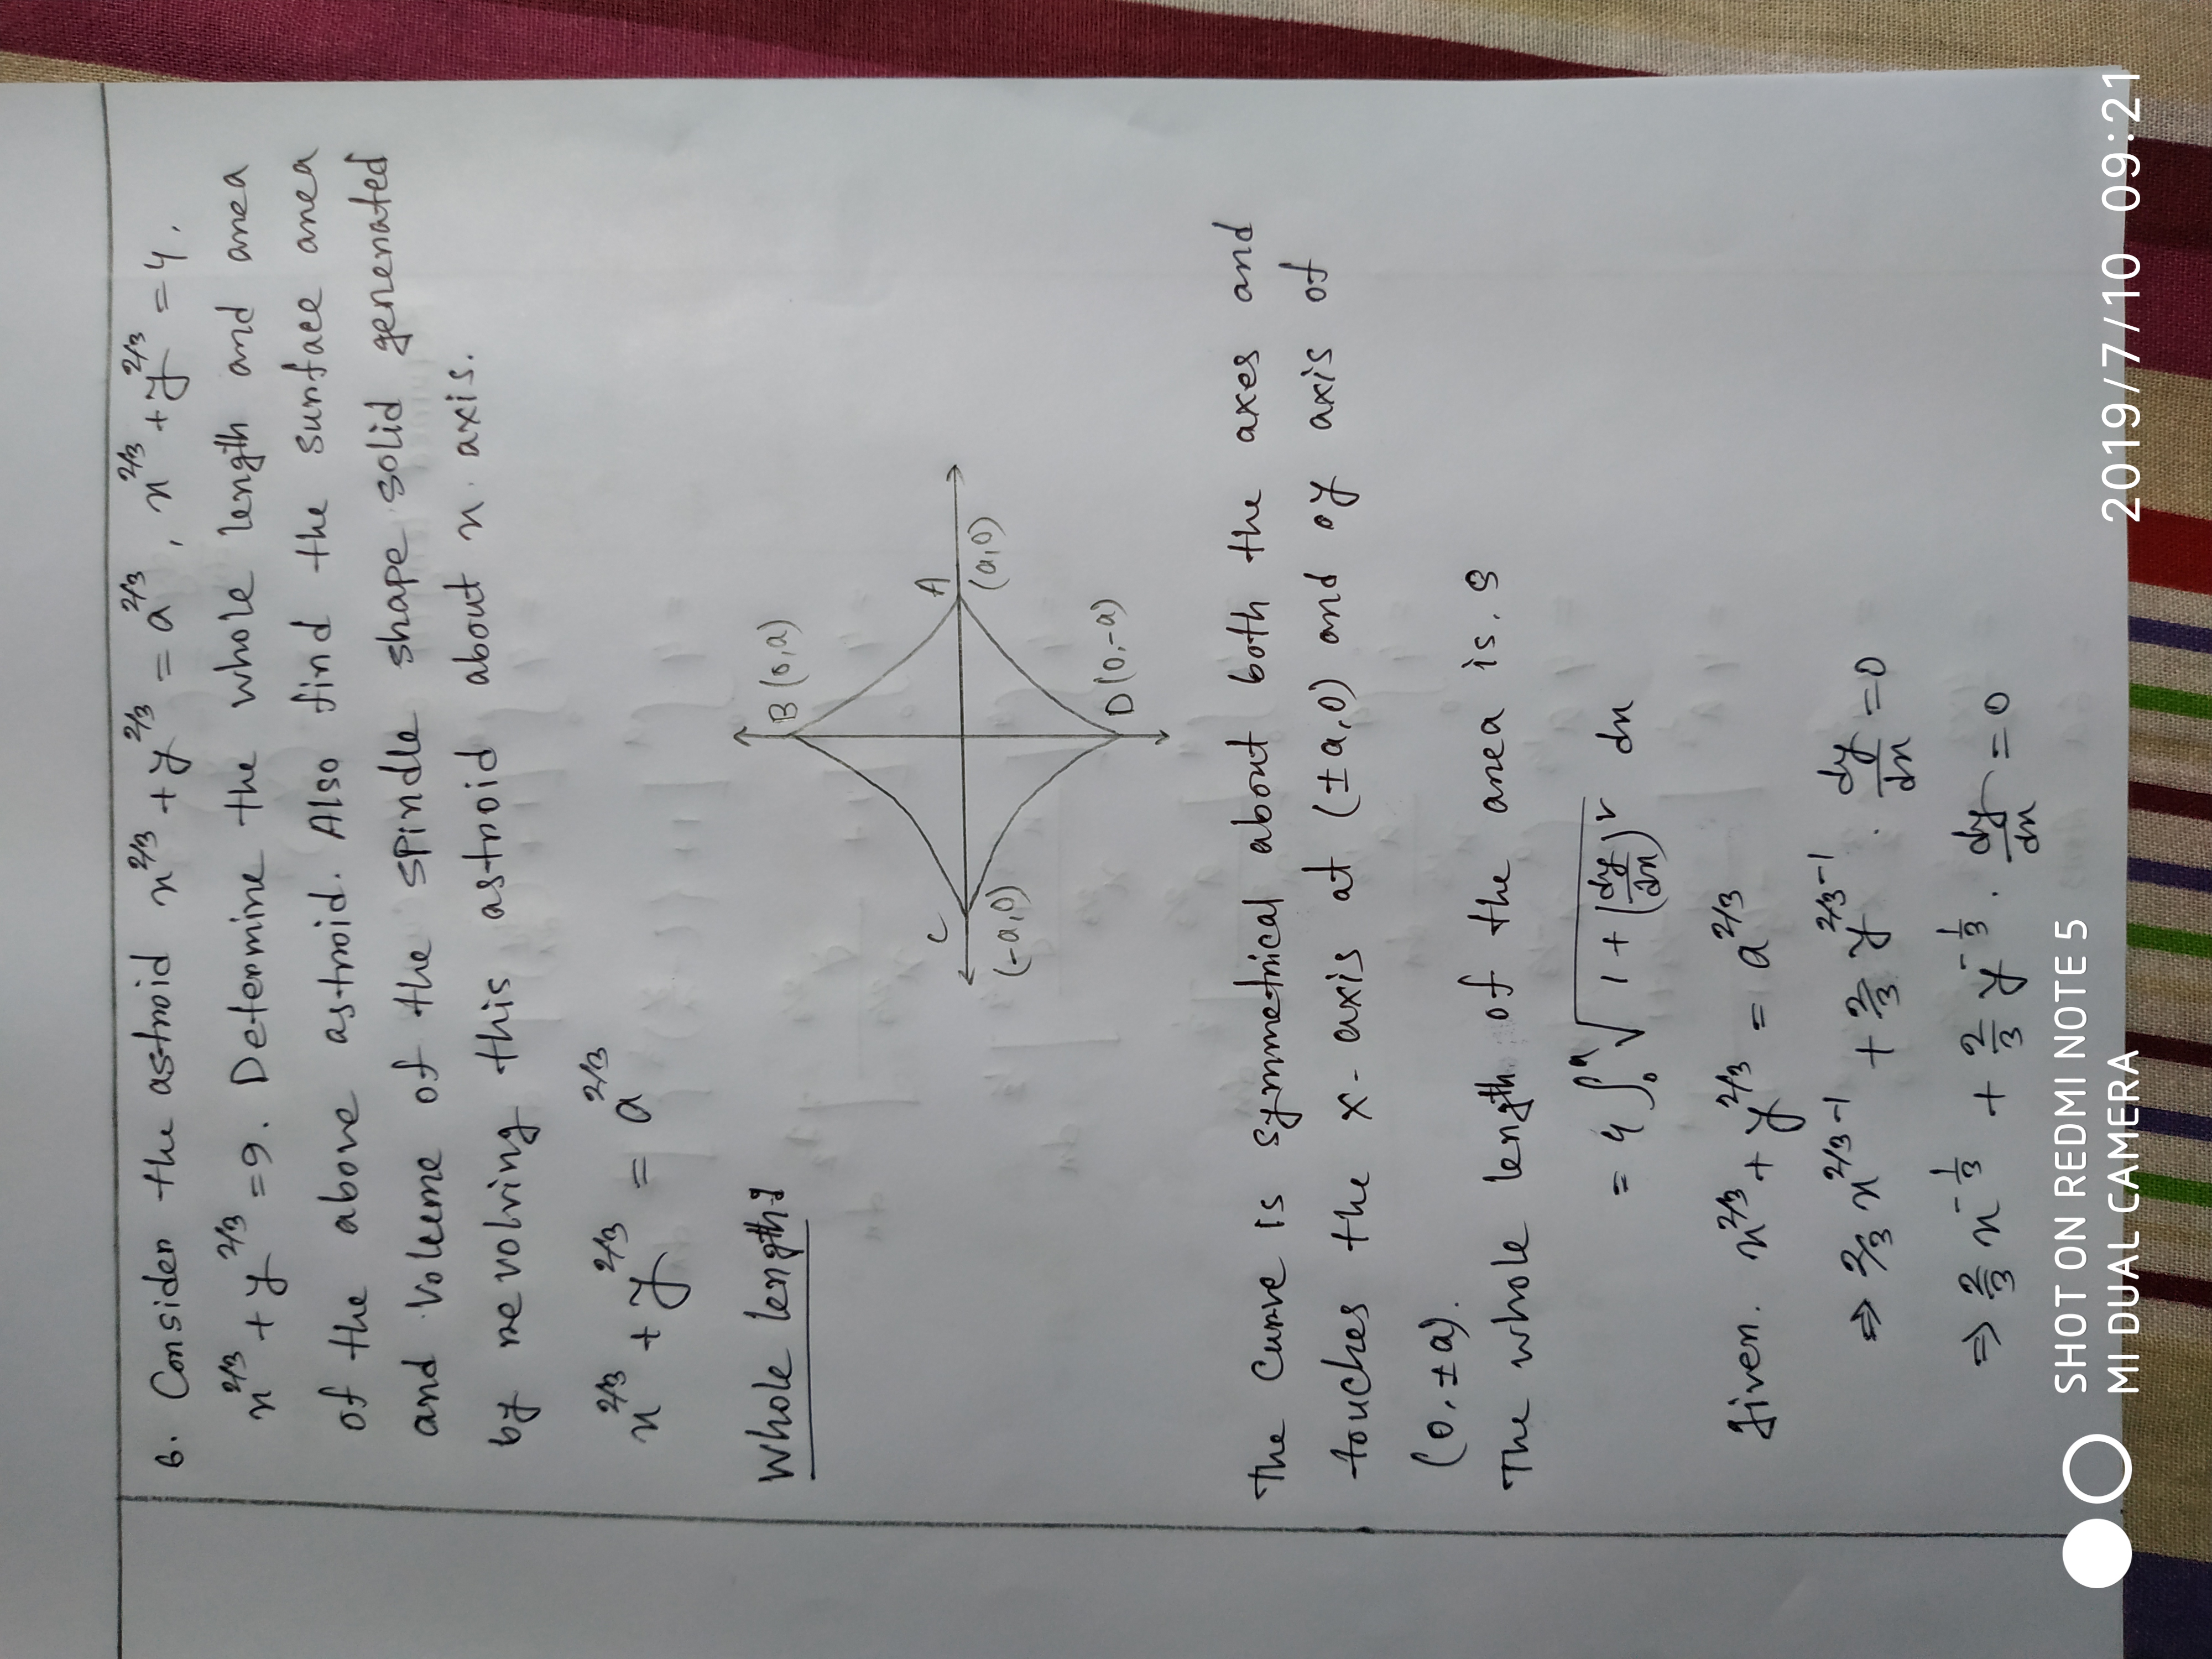 6. Consider the astroid x^2/3 + y^2/3 = a^2/3, x^2/3 + y^2/3 = 4,
x^2/3 + y^2/3 = 9. Determine the whole length and area
of the above astroid. Also find the surface area
and volume of the spindle shape solid generated
by revolving this astroid about x axis.
x^2/3 + y^2/3 = a^2/3
Whole length:
B (0,a)
C
A
(-a,0)
(a,0)
D (0,-a)
The curve is symmetrical about both the axes and
touches the x-axis at (±a,0) and oy axis of
(0,±a).
The whole length of the area is.
= 4 ∫₀^a √(1 + (dy/dx)²) dx
given. x^2/3 + y^2/3 = a^2/3
⇒ 2/3 x^2/3-1 + 2/3 y^2/3-1 . dy/dx = 0
⇒ 2/3 x^-1/3 + 2/3 y^-1/3 . dy/dx = 0
SHOT ON REDMI NOTE 5
MI DUAL CAMERA
2019/7/10 09:21